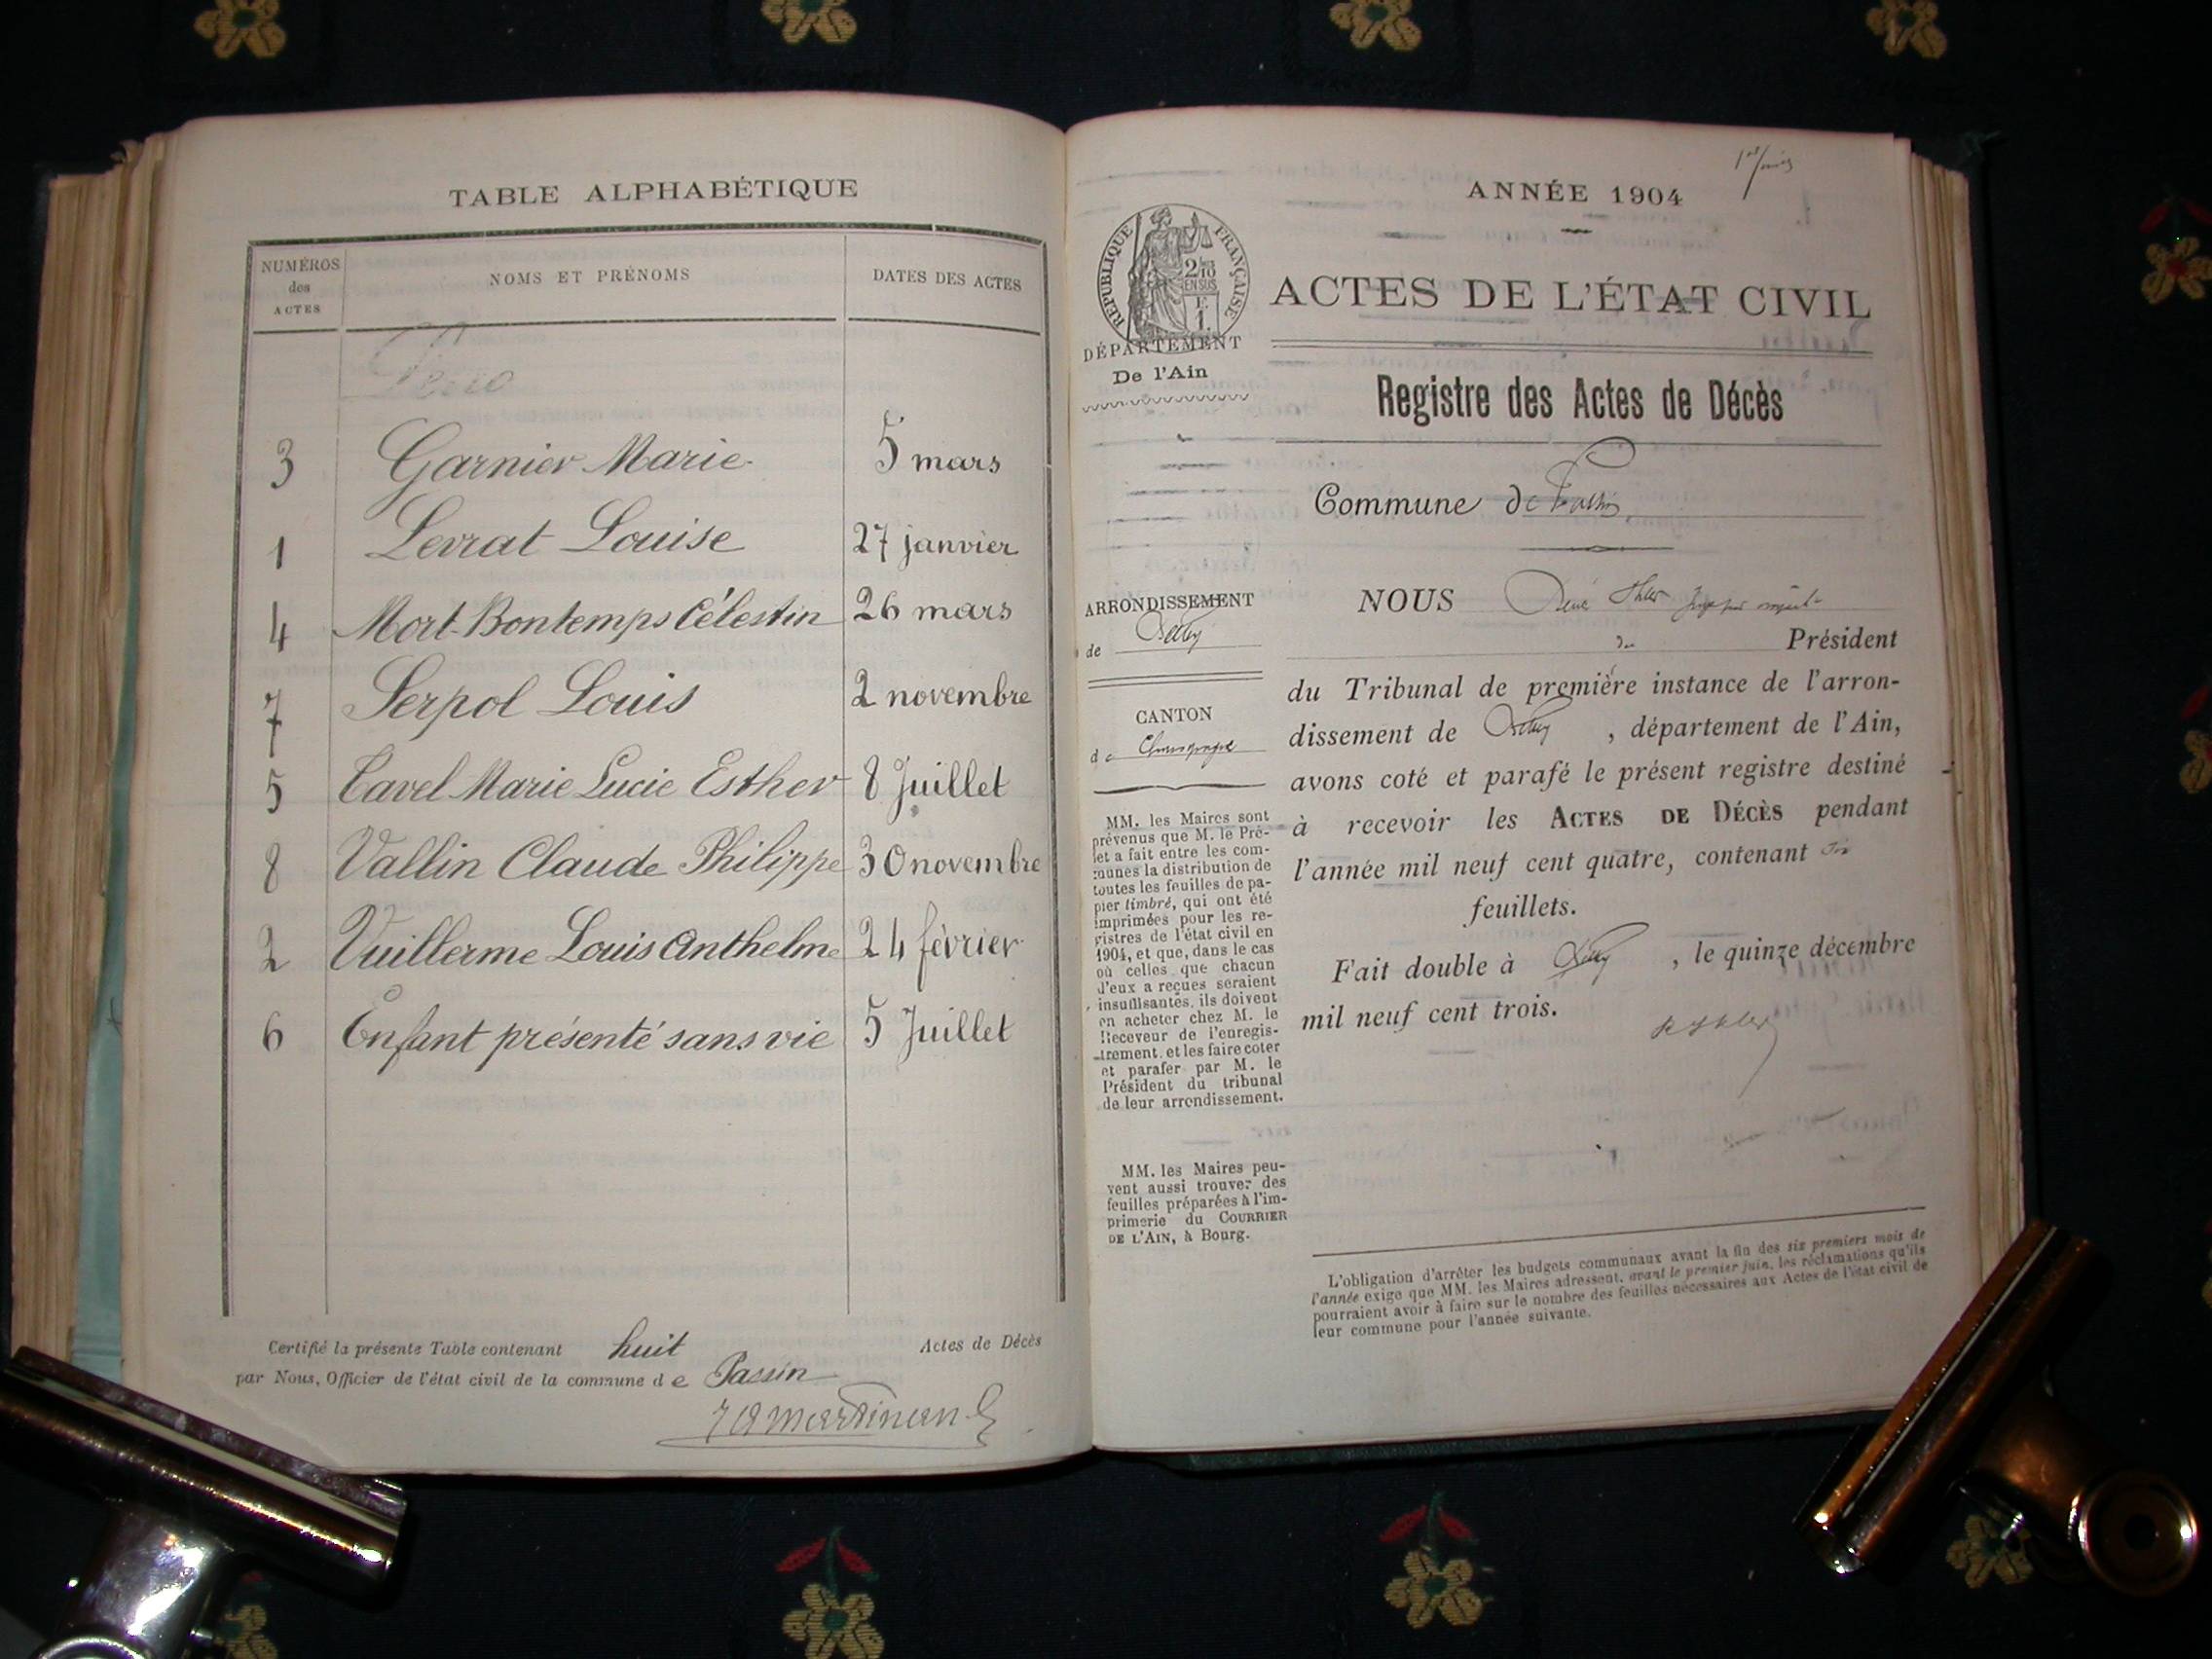 TABLE ALPHABÉTIQUE
NUMÉROS des ACTES NOMS ET PRÉNOMS DATES DES ACTES
3 Garnier Marie 5 mars
1 Levrat Louise 27 janvier
4 Mort-Bontemps Célestin 26 mars
7 Serpol Louis 2 novembre
5 Tavel Marie Lucie Esther 8 Juillet
8 Vallin Claude Philippe 30 novembre
2 Vuillerme Louis Anthelme 24 février
6 Enfant présenté sans vie 5 Juillet
Certifié la présente Table contenant huit Actes de Décès
par Nous, Officier de l'état civil de la commune de Passin
ANNÉE 1904
RÉPUBLIQUE FRANÇAISE
2/10
EN SUS
ACTES DE L'ÉTAT CIVIL
DÉPARTEMENT
De l'Ain
Registre des Actes de Décès
Commune de Passin
ARRONDISSEMENT
de Belley
CANTON
de Champagne
MM. les Maires sont
prévenus que M. le Pré-
fet a fait entre les com-
munes la distribution de
toutes les feuilles de pa-
pier timbré, qui ont été
imprimées pour les re-
gistres de l'état civil en
1904, et que, dans le cas
où celles que chacun
d'eux a reçues seraient
insuffisantes, ils doivent
en acheter chez M. le
Receveur de l'enregis-
trement, et les faire coter
et parafer par M. le
Président du tribunal
de leur arrondissement.
MM. les Maires peu-
vent aussi trouver des
feuilles préparées à l'im-
primerie du COURRIER
DE L'AIN, à Bourg.
NOUS René
Président
du Tribunal de première instance de l'arron-
dissement de Belley, département de l'Ain,
avons coté et parafé le présent registre destiné
à recevoir les ACTES DE DÉCÈS pendant
l'année mil neuf cent quatre, contenant
feuillets.
Fait double à Belley, le quinze décembre
mil neuf cent trois.
L'obligation d'arrêter les budgets communaux avant la fin des six premiers mois de
l'année exige que MM. les Maires adressent, avant le premier juin, les réclamations qu'ils
pourraient avoir à faire sur le nombre des feuilles nécessaires aux Actes de l'état civil de
leur commune pour l'année suivante.